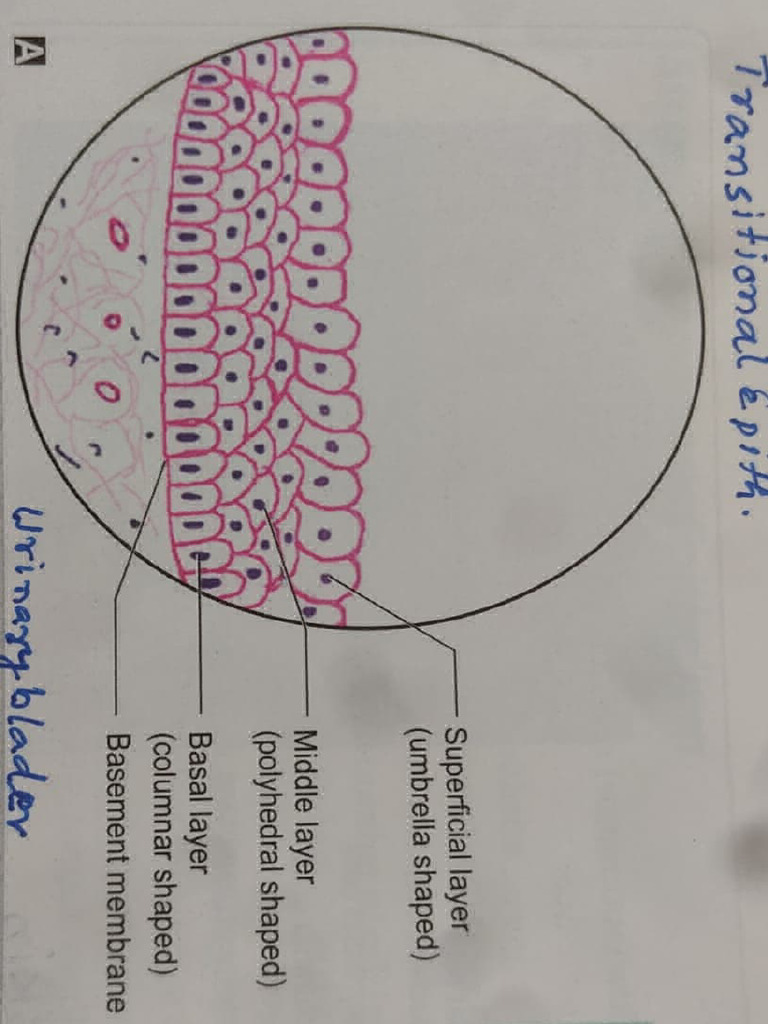 Transitional Epith.
Superficial layer
(umbrella shaped)
Middle layer
(polyhedral shaped)
Basal layer
(columnar shaped)
Basement membrane
A
Urinary blader